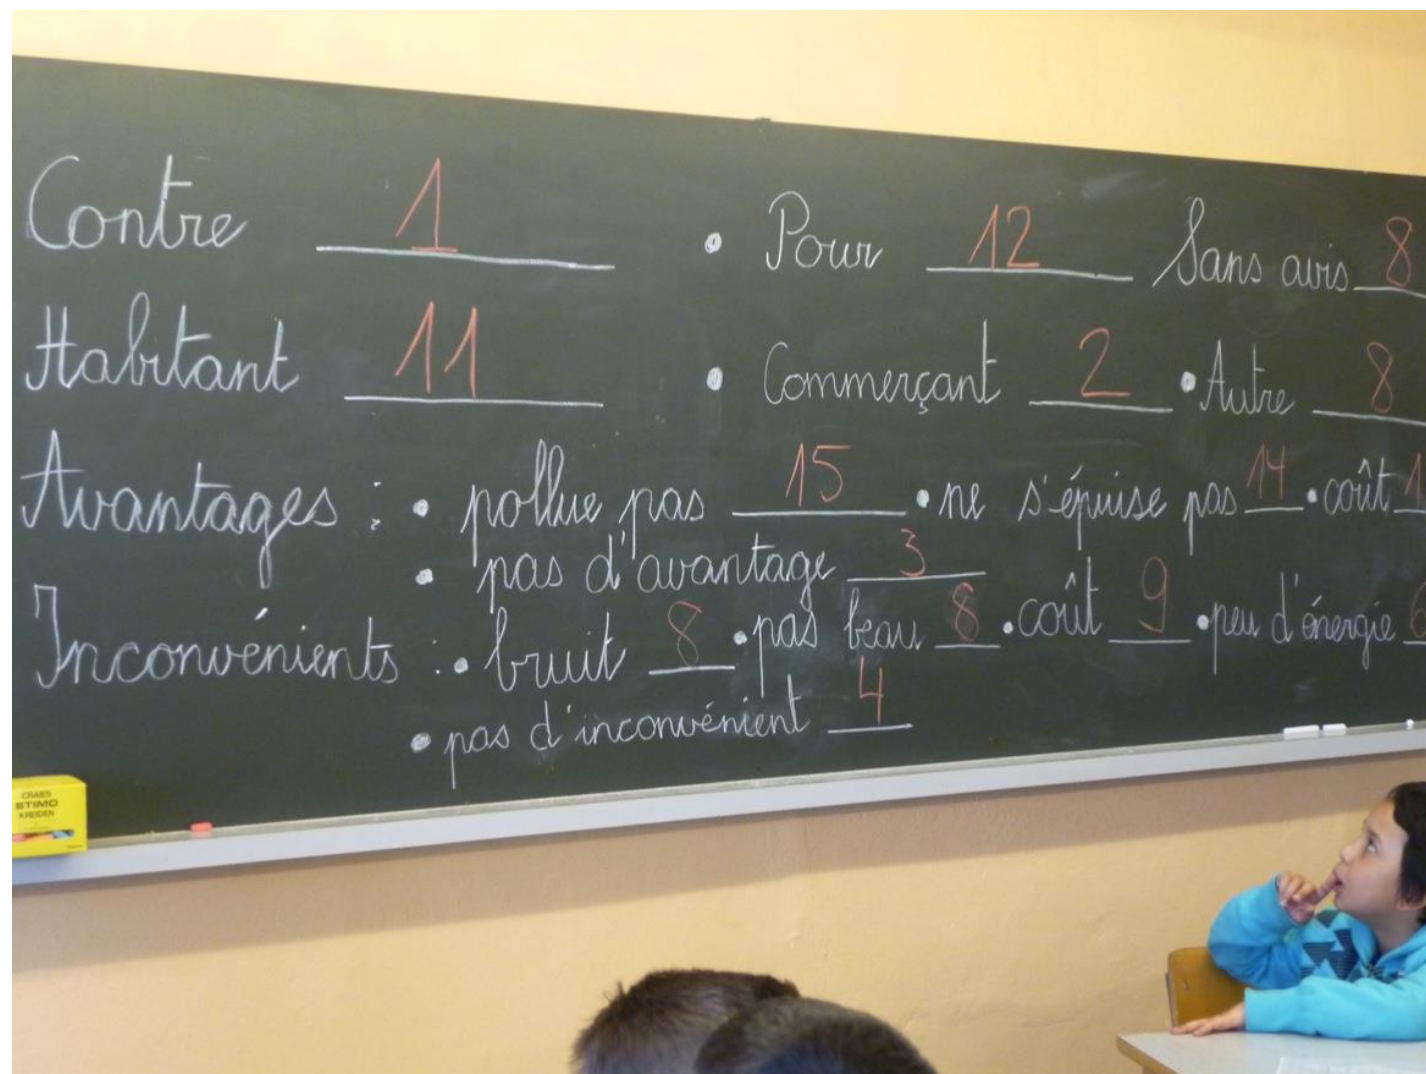 Contre 1 • Pour 12 Sans avis 8
Habitant 11 • Commerçant 2 • Autre 8
Avantages : • pollue pas 15 • ne s'épuise pas 14 • coût 1
• pas d'avantage 3
Inconvénients : • bruit 8 • pas beau 8 • coût 9 • peu d'énergie 6
• pas d'inconvénient 4
CRAIES
STIMO
KREIDEN